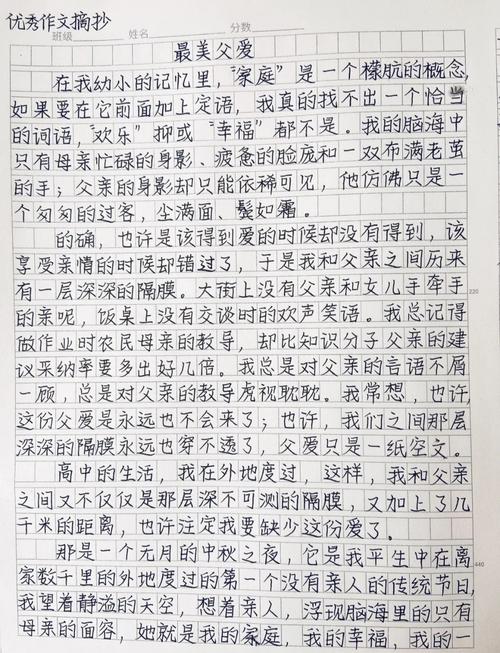 优秀作文摘抄
班级 姓名 分数
最美父爱
在我幼小的记忆里，"家庭"是一个檬肮的概念，
如果要在它前面加上定语，我真的找不出一个恰当
的词语，"欢乐"抑或"幸福"都不是。我的脑海中
只有母亲忙碌的身影、疲惫的脸庞和一双布满老茧
的手；父亲的身影却只能依稀可见，他仿佛只是一
个匆匆的过客，尘满面、鬓如霜。
的确，也许是该得到爱的时候却没有得到，该
享受亲情的时候却错过了，于是我和父亲之间历来
有一层深深的隔膜。大街上没有父亲和女儿手牵手
220
的亲昵，饭桌上没有交谈时的欢声笑语。我总记得
做作业时农民母亲的教导，却比知识分子父亲的建
议采纳率要多出好几倍。我总是对父亲的言语不屑
一顾，总是对父亲的教导虎视耽耽。我常想，也许，
这份父爱是永远也不会来了；也许，我们之间那层
深深的隔膜永远也穿不透了，父爱只是一纸空文。
高中的生活，我在外地度过，这样，我和父亲
之间又不仅仅是那层深不可测的隔膜，又加上了几
千米的距离，也许注定我要缺少这份爱了。
那是一个无月的中秋之夜，它是我平生中在离
440
家数千里的外地度过的第一个没有亲人的传统节日，
我望着静谧的天空，想着亲人，浮现脑海里的只有
母亲的面容，她就是我的家庭，我的幸福，我的一